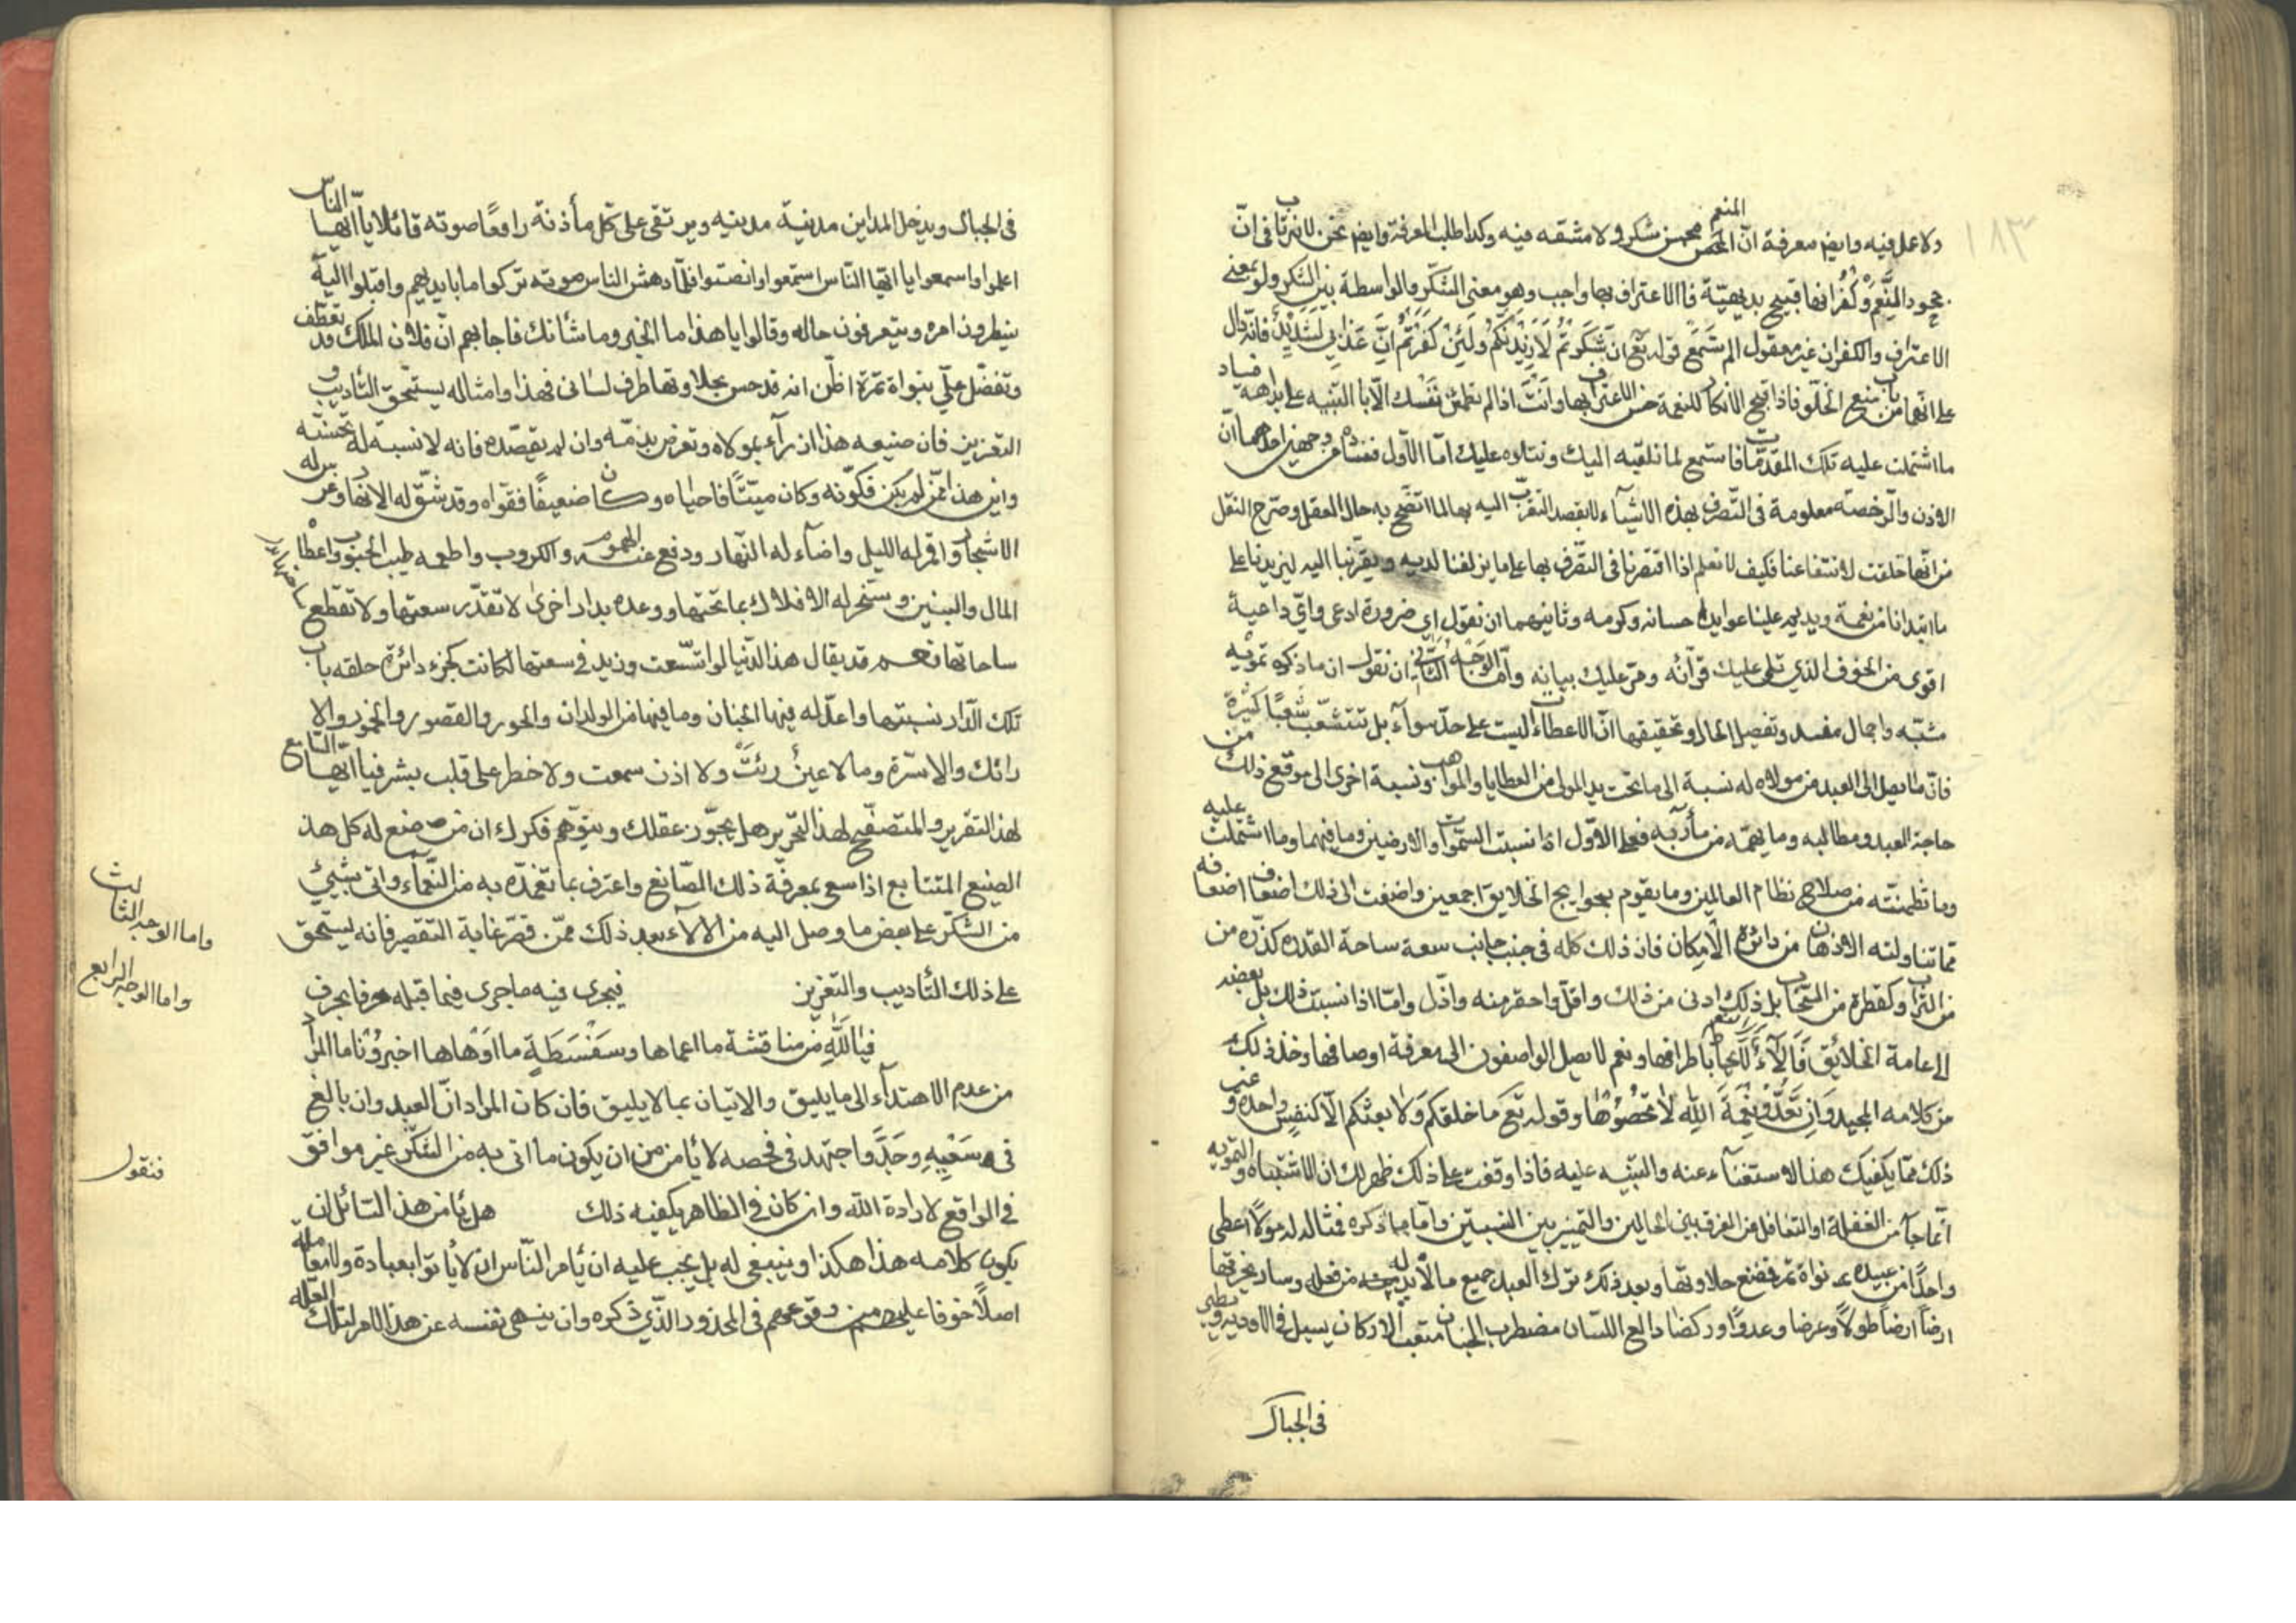 ١٨٣
دلاعل فيه وايضا معرفة انّ المنعم المحض محسن شكره ولا مشقه فيه وكذا طلب المعرفة وايضا نحن لا نرتاب فى انّ
جحود المنعم وكفرانها قبيح بديهيّة فالاعتراف بها واجب وهو معنى الشكر والواسطة بين الشكر ولو بمعنى
الاعتراف والكفران غير معقول الم تسمع قوله تع ان شكرتم لازيدنكم ولئن كفرتم انّ عذابي لشديد فانه دال
على انهما من باب منع الخلو فاذا قبح الانكار للنعمة حسن الاعتراف بها وانت اذا لم تطمئن نفسك الّا بالتنبيه على بداهه فساد
ما اشتملت عليه تلك المقدمات فاستمع لما نلقيه اليك ونتلوه عليك امّا الاول ففساده من وجهين احدهما انّ
الاذن والرخصة معلومة فى التصرف بهذه الاشياء لا بقصد التقرب اليه بها لما اتضح به حال العقل وصرح النقل
من انها خلقت لانتفاعنا فكيف لا نعلم اذا اقتصرنا فى التصرف بها على ما يزلفنا لديه ويقربنا اليه ليزيدنا على
ما ابتدانا من نعمة ويديم علينا عوايد احسانه وكرمه وثانيهما ان نقول اي ضرورة ادعى وايّ داعية
اقوى من الخوف الذي تلى عليك قرآنه ومرّ عليك بيانه وامّا الوجه الثاني ان نقول ان ما ذكره تمويه
مشبّه واجمال مفسد وتفصيل الحال وتحقيقها انّ الاعطاءات ليست على حدّ سواء بل تتشعّب شعبًا كثيرة
فانّ ما يصل الى العبد من مولاه له نسبة الى ما تحت يد المولى من العطايا والمواهب ونسبة اخرى الى موقع ذلك من
حاجة العبد ومطالبه وما يهمّه من مآربه فعلى الاوّل اذا نسبت السّموات والارضين وما فيهما وما اشتملت عليه
وما تضمنته من صلاح نظام العالمين وما يقوم بحوايج الخلايق اجمعين واضفت الى ذلك اضعاف اضعافه
ممّا تناولته الاذهان من دائرة الامكان فان ذلك كله فى جنب جانب سعة ساحة القدره كذرّه من
من التراب وكقطرة من السّحاب بل ذلك ادنى من ذلك واقلّ واحقر منه واذلّ وامّا اذا نسبت ذلك بل بعضه
الى عامة الخلائق فآلاء لا يحاط باطرافها ونعم لا يصل الواصفون الى معرفة اوصافها وخذ ذلك
من كلامه المجيد وان تعدّوا نعمة الله لا تحصوها وقوله تع ما خلقكم ولا بعثكم الّا كنفس واحدة وغير
ذلك ممّا يكفيك هذا الاستغناء عنه والتنبيه عليه فاذا وقفت على ذلك ظهر لك ان الاشتباه والتمويه
انّما جآء من الغفلة او التغافل من الفرق بين الحالين والتمييز بين النسبتين وامّا ما ذكره فمثاله له مولًا اعطى
واحدًا من عبيده نواة تمر فضع حلاوتها وبعد ذلك ترك العبد جميع ما لا بد له منه من فعله وسار يخرقها
ارضًا ارضًا طولًا وعرضا وعدوًا وركضا دالع اللسان مضطرب الجنان متعب الاركان يسيل فى الاودية ويطير
فى الجبال
فى الجبال ويدخل المداين مدينة مدينه ويرتقى على كل مأذنة رافعًا صوته قائلا يا ايّها الناس
اعلموا واسمعوا يا ايّها النّاس استمعوا وانصتوا فلمّا دهش الناس صوته تركوا ما بايديهم واقبلوا اليه
ينظرون امره ويتعرفون حاله وقالوا يا هذا ما الخبر وما شأنك فاجابهم انّ فلان الملك قد تعطّف
وتفضّل عليّ بنواة تمرة اظن انه قد حس بحلاوتها طرف لسانى فهذا وامثاله يستحق التأديب و
التعزيز فان صنيعه هذا ازرآء بمولاه وتعرض بذمّه وان لم يقصده فانه لا نسبة له تحسنه
واين هذا ممّن لم يكن فكوّنه وكان ميتًا فاحياه وكان ضعيفًا فقواه وقد شقّ له الانهار وغرس له
الاشجار واقمر له الليل واضآء له النّهار ودفع عنه الهموم والكروب واطعمه طيب الحبوب واعطاه
المال والبنين وسخر له الافلاك بما تحتها ووعده بدار اخرى لا تقدّر سعتها ولا تقطع
ساحاتها فعم قد يقال هذا الدّنيا لو اتسّعت وزيد فى سعتها لكانت كجزء دائرة حلقه باب
تلك الدّار نسبتها واعدّ له فيها الجنان وما فيها من الولدان والحور والقصور والخمور والا
رائك والاسرّة وما لا عينٌ رئتّ ولا اذن سمعت ولا خطر على قلب بشر فيا ايّها السّامع
لهذ التقرير والمتصفّح لهذ التحرير هل يجوّز عقلك ويتوّهم فكرك ان من صنع له كل هذ
الصنيع المتتابع اذا سعى بمعرفة ذلك الصّانع واعترف بما تغمّده به من النّعماء واتى بشيئ
من الشكر على بعض ما وصل اليه من الالاء بعد ذلك ممّن قصّر غاية التقصير فانه يستحق
على ذلك التأديب والتعزيز فيجرى فيه ما جرى فيما قبله حرفا بحرف
واما الوجه الثالث
واما الوجه الرابع
فيالله من مناقشة ما اعماها وسفسطةٍ ما اوهاها اخبرونا ما المراد
من عدم الاهتدآء الى ما يليق والاتيان بما لا يليق فان كان المراد انّ العبد وان بالغ
فى سعيه وجدّ واجتهد فى فحصه لا يأمن من ان يكون ما اتى به من الشكر غير موافق
فى الواقع لارادة الله وان كان فى الظاهر يكفيه ذلك هل يأمن هذ السّائل ان
فنقول
يكون كلامه هذا هكذا وينبغى له بل يجب عليه ان يأمر النّاس ان لا يأتوا بعبادة ولا معاملة
اصلًا خوفا عليهم من وقوعهم فى المحذور الذّي ذكره وان ينهى نفسه عن هذ الامر لتلك العلّه